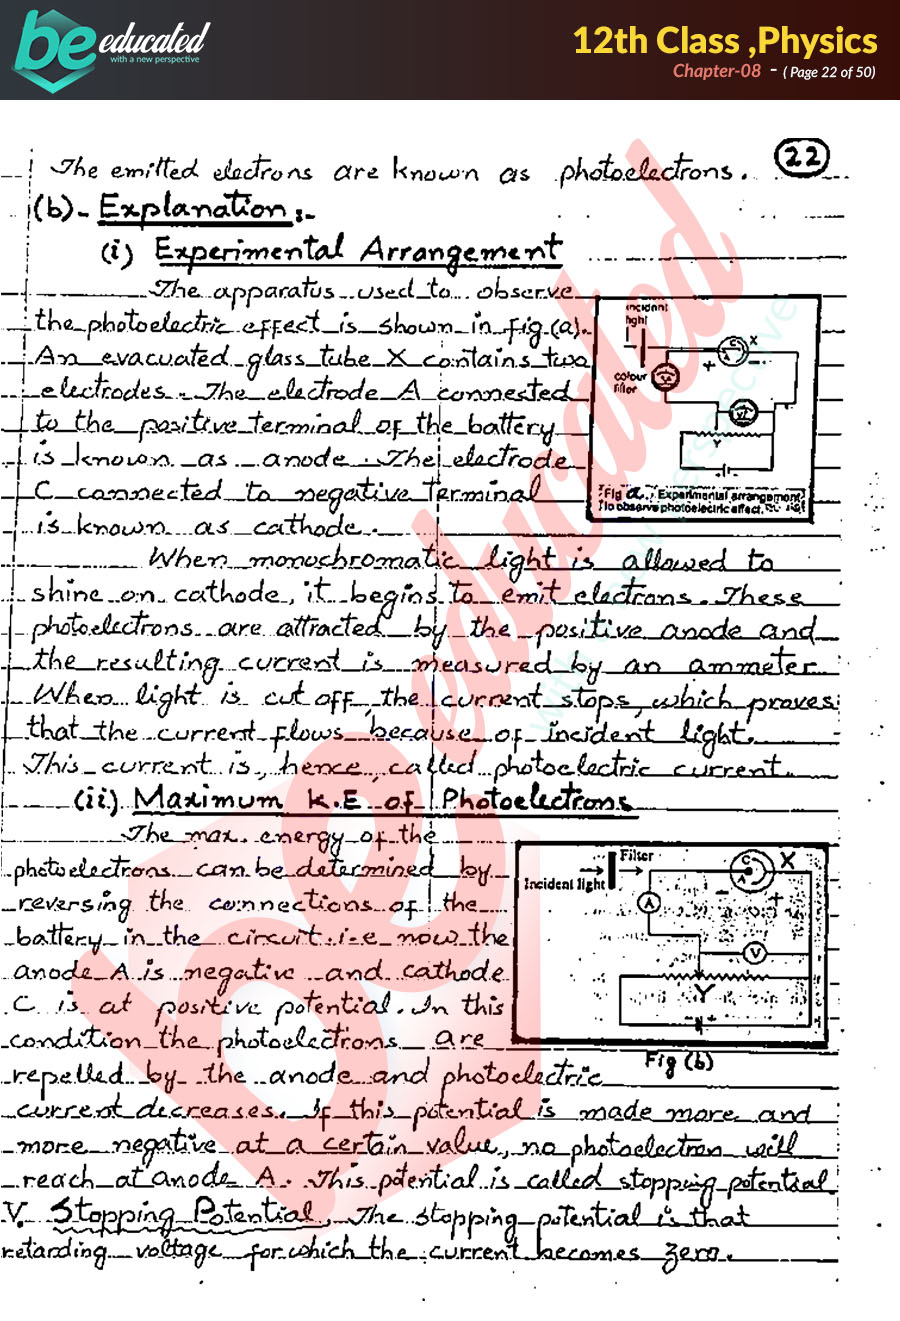 be educated
with a new perspective
12th Class ,Physics
Chapter-08 - ( Page 22 of 50)
22
The emitted electrons are known as photoelectrons.
(b)- Explanation:-
(i) Experimental Arrangement
The apparatus used to observe
the photoelectric effect is shown in fig.(a).
An evacuated glass tube X contains two
electrodes. The electrode A connected
to the positive terminal of the battery
is known as anode. The electrode
C connected to negative terminal
is known as cathode.
incident
light
colour
filter
C
X
+
-
Y
Fig a. Experimental arrangement
To observe photoelectric effect.
When monochromatic light is allowed to
shine on cathode, it begins to emit electrons. These
photoelectrons are attracted by the positive anode and
the resulting current is measured by an ammeter.
When light is cut off, the current stops, which proves
that the current flows because of incident light.
This current is, hence, called photoelectric current.
(ii) Maximum K.E of Photoelectrons
The max. energy of the
photoelectrons can be determined by
reversing the connections of the
battery in the circuit. i.e now the
anode A is negative and cathode
C is at positive potential. In this
condition the photoelectrons are
repelled by the anode and photoelectric
current decreases. If this potential is made more and
more negative at a certain value, no photoelectron will
reach at anode A. This potential is called stopping potential
V. Stopping Potential, The stopping potential is that
retarding voltage for which the current becomes zero.
Filter
Incident light
C
A
X
-
+
A
V
Y
- +
Fig (b)
be educated
with a new perspective